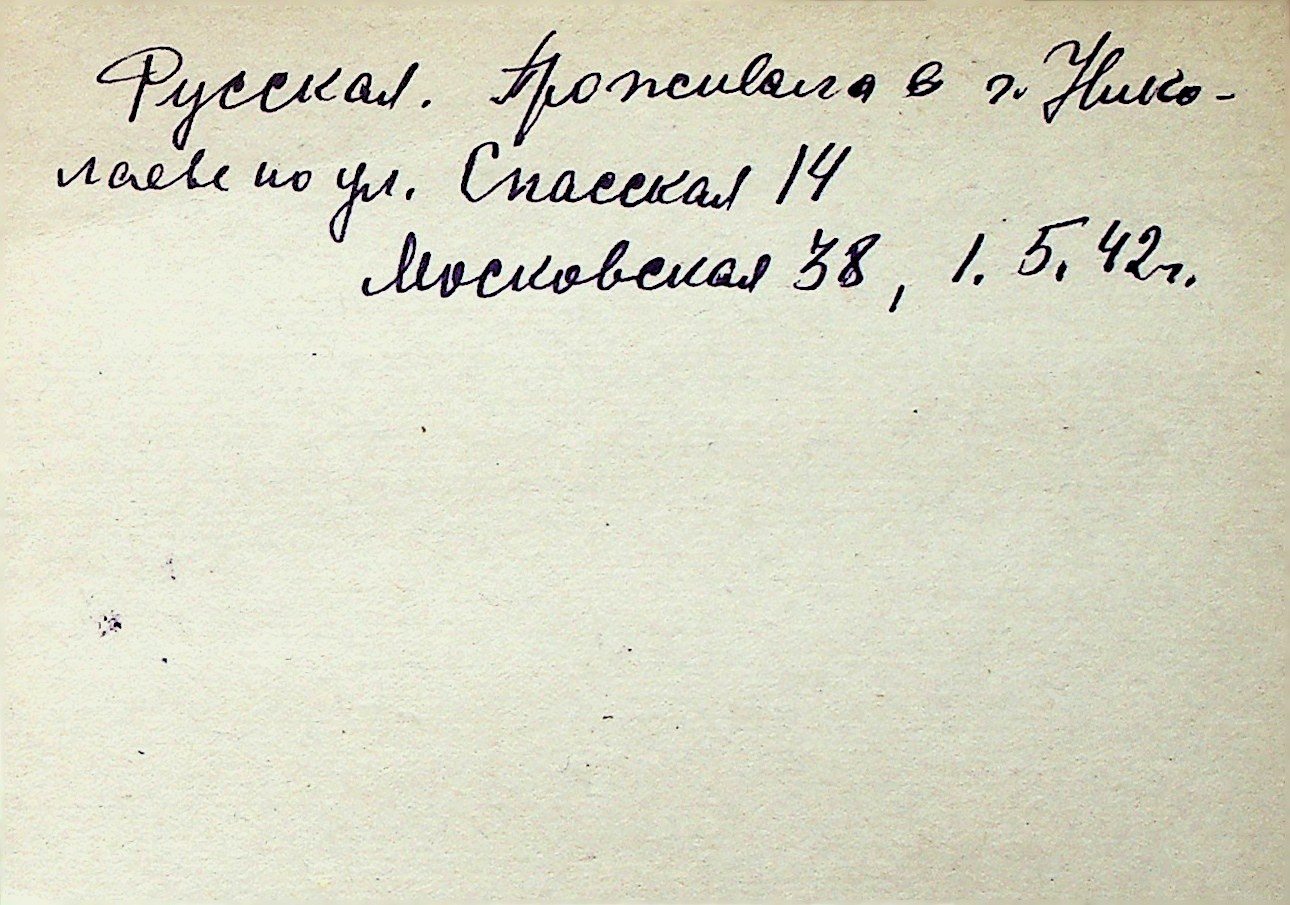 Русская. Проживала в г. Нико-
лаеве по ул. Спасская 14
Московская 38, 1.5.42г.